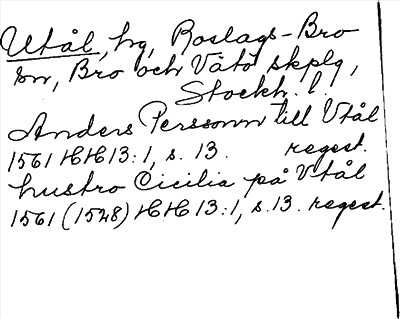 Utål, hg, Roslags-Bro
sn, Bro och Vätö skplg,
Stockh. l.
Anders Personn till Vtål
1561 HH 13:1, s. 13. regest.
hustro Cicilia på Vtål
1561 (1528) HH 13:1, s. 13. regest.